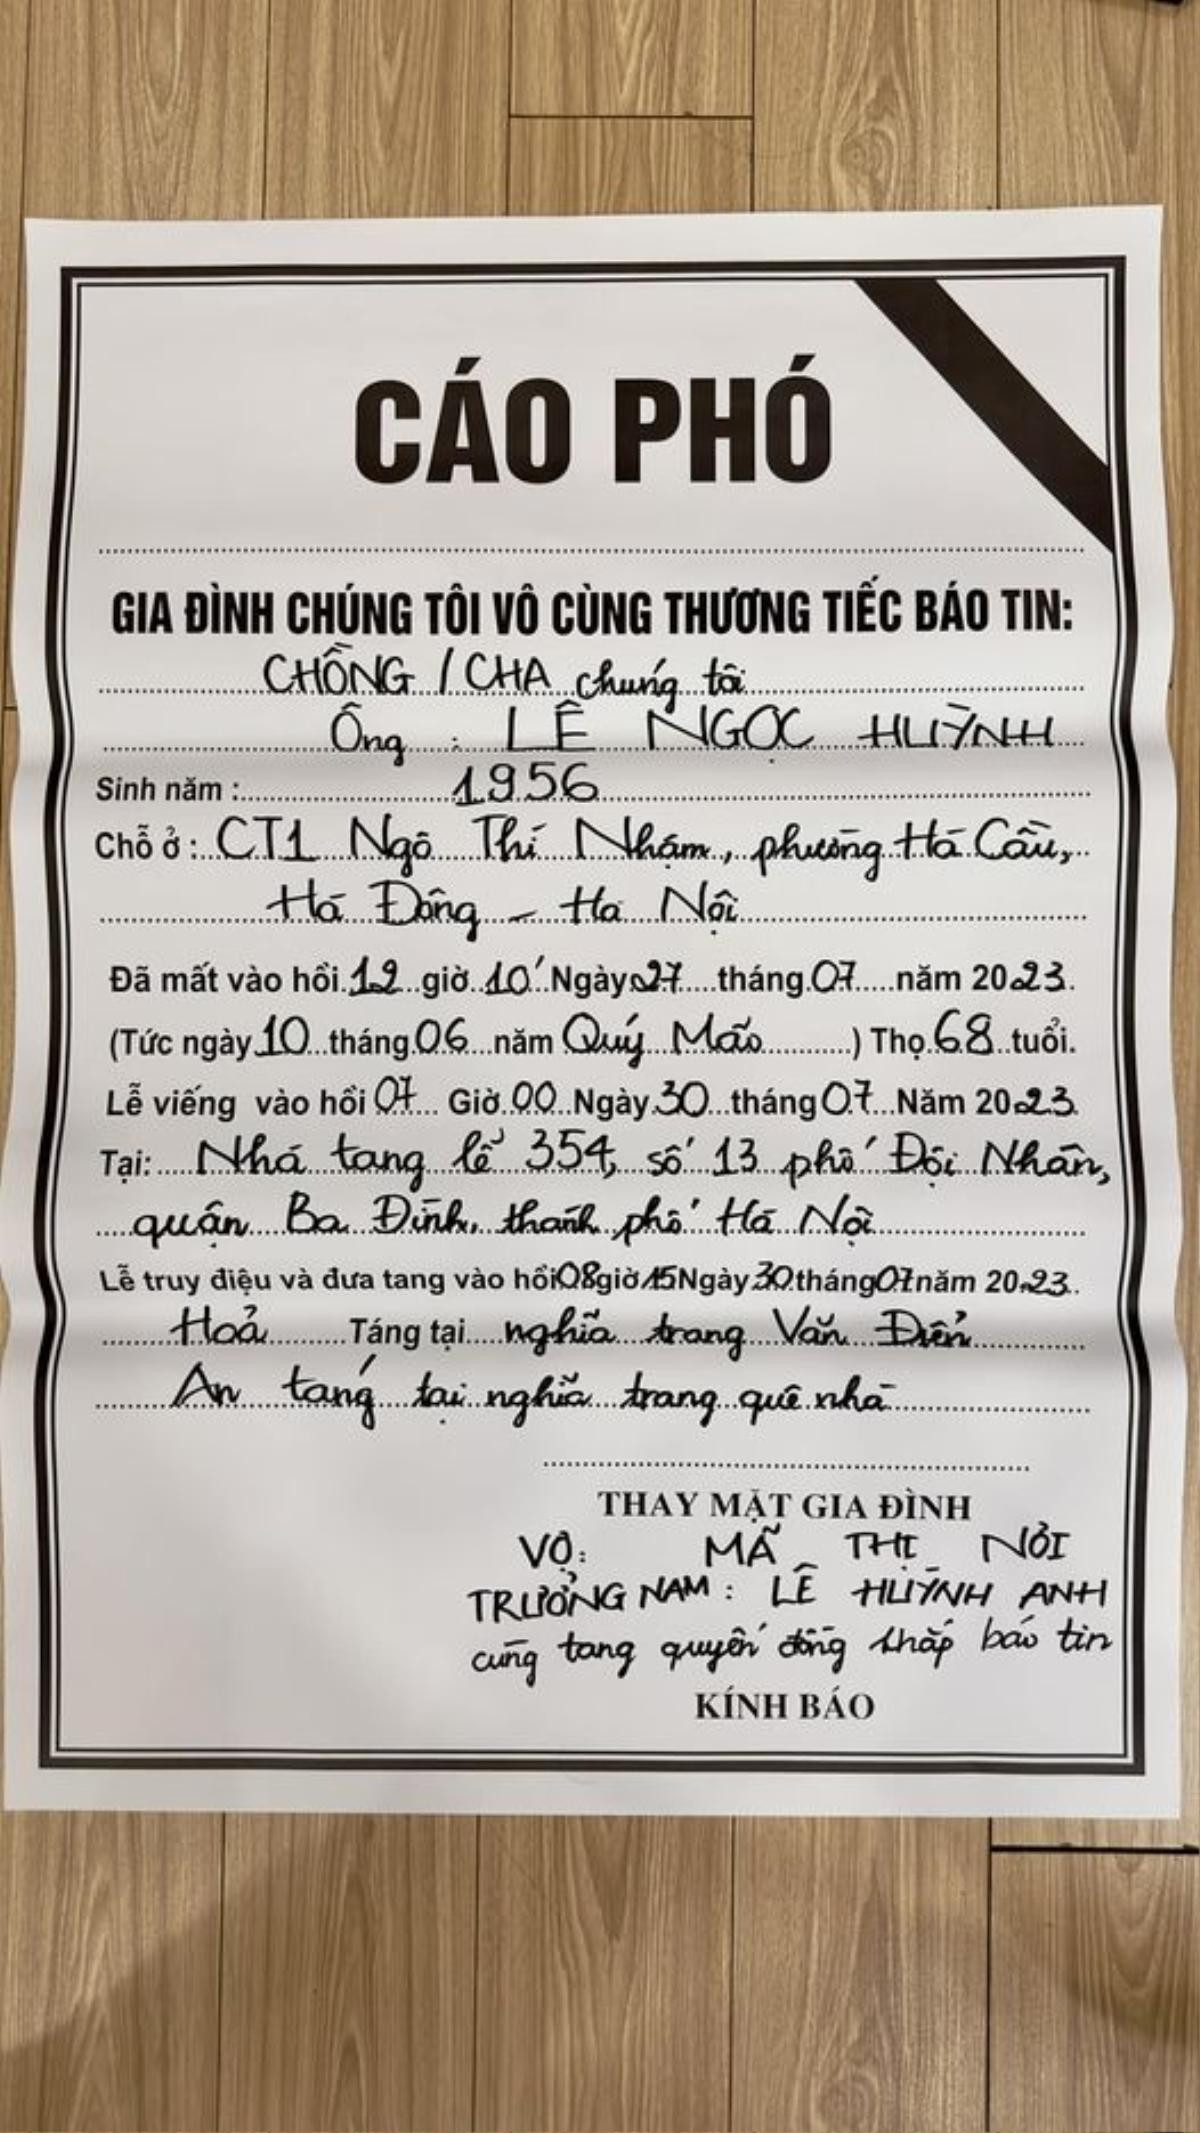 CÁO PHÓ
GIA ĐÌNH CHÚNG TÔI VÔ CÙNG THƯƠNG TIẾC BÁO TIN:
CHỒNG / CHA chúng tôi
Ông : LÊ NGỌC HUỲNH
Sinh năm : 1956
Chỗ ở : CT1 Ngô Thì Nhậm, phường Hà Cầu,
Hà Đông - Hà Nội
Đã mất vào hồi 12 giờ 10' Ngày 27 tháng 07 năm 2023.
(Tức ngày 10 tháng 06 năm Quý Mão ) Thọ 68 tuổi.
Lễ viếng vào hồi 07 Giờ 00 Ngày 30 tháng 07 Năm 2023.
Tại: Nhà tang lễ 354, số 13 phố Đội Nhân,
quận Ba Đình, thành phố Hà Nội
Lễ truy điệu và đưa tang vào hồi 08 giờ 15 Ngày 30 tháng 07 năm 2023.
Hoả Táng tại nghĩa trang Văn Điển
An táng tại nghĩa trang quê nhà
THAY MẶT GIA ĐÌNH
VỢ: MÃ THỊ NỞI
TRƯỞNG NAM : LÊ HUỲNH ANH
cùng tang quyến đồng khấp báo tin
KÍNH BÁO